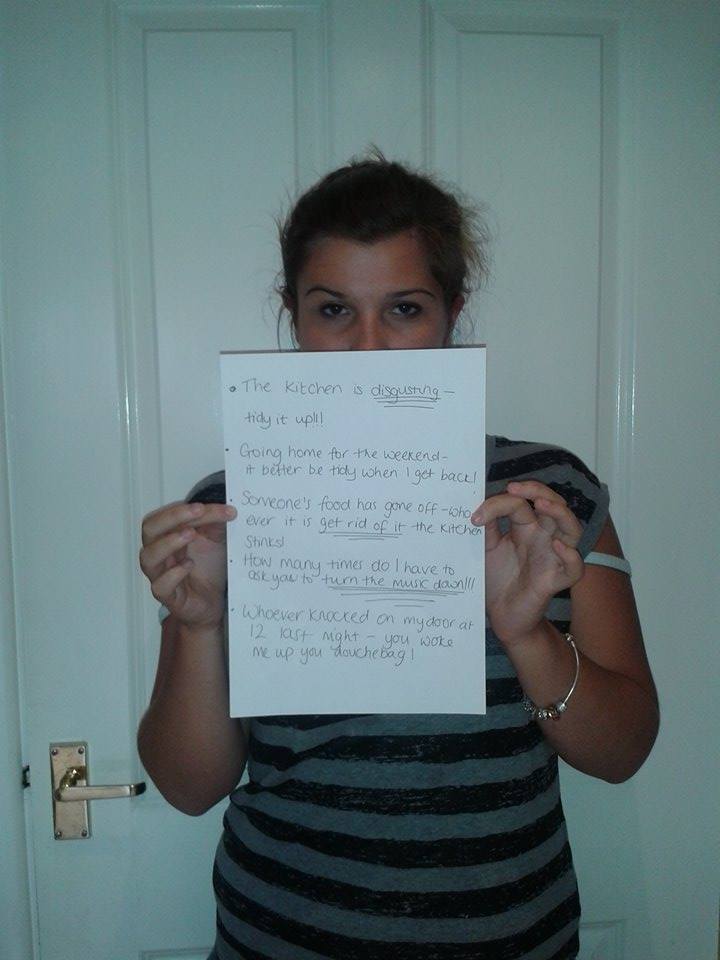 • The kitchen is disgusting –
tidy it up!!!
• Going home for the weekend –
it better be tidy when I get back!
• Someone's food has gone off – who
ever it is get rid of it the kitchen
stinks!
• How many times do I have to
ask you to turn the music down!!!
• Whoever knocked on my door at
12 last night – you woke
me up you douchebag!